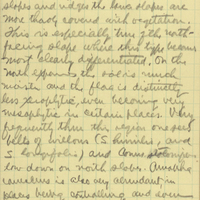 slopes and ridges the lower slopes are
more thickly covered with vegetation.
This is especially true of the north-
facing slopes where this type becomes
most clearly differentiated. On the
north exposures the soil is much
moister and the flora is distinctly
less xerophytic, even becoming very
mesophytic in certain places. Very
frequently thru this region one sees
belts of willow (S. humilis, and
S. longifolia) and Cornus stolonifera
low down on north slopes. Amorpha
canescens is also very abundant in
places being controlling and